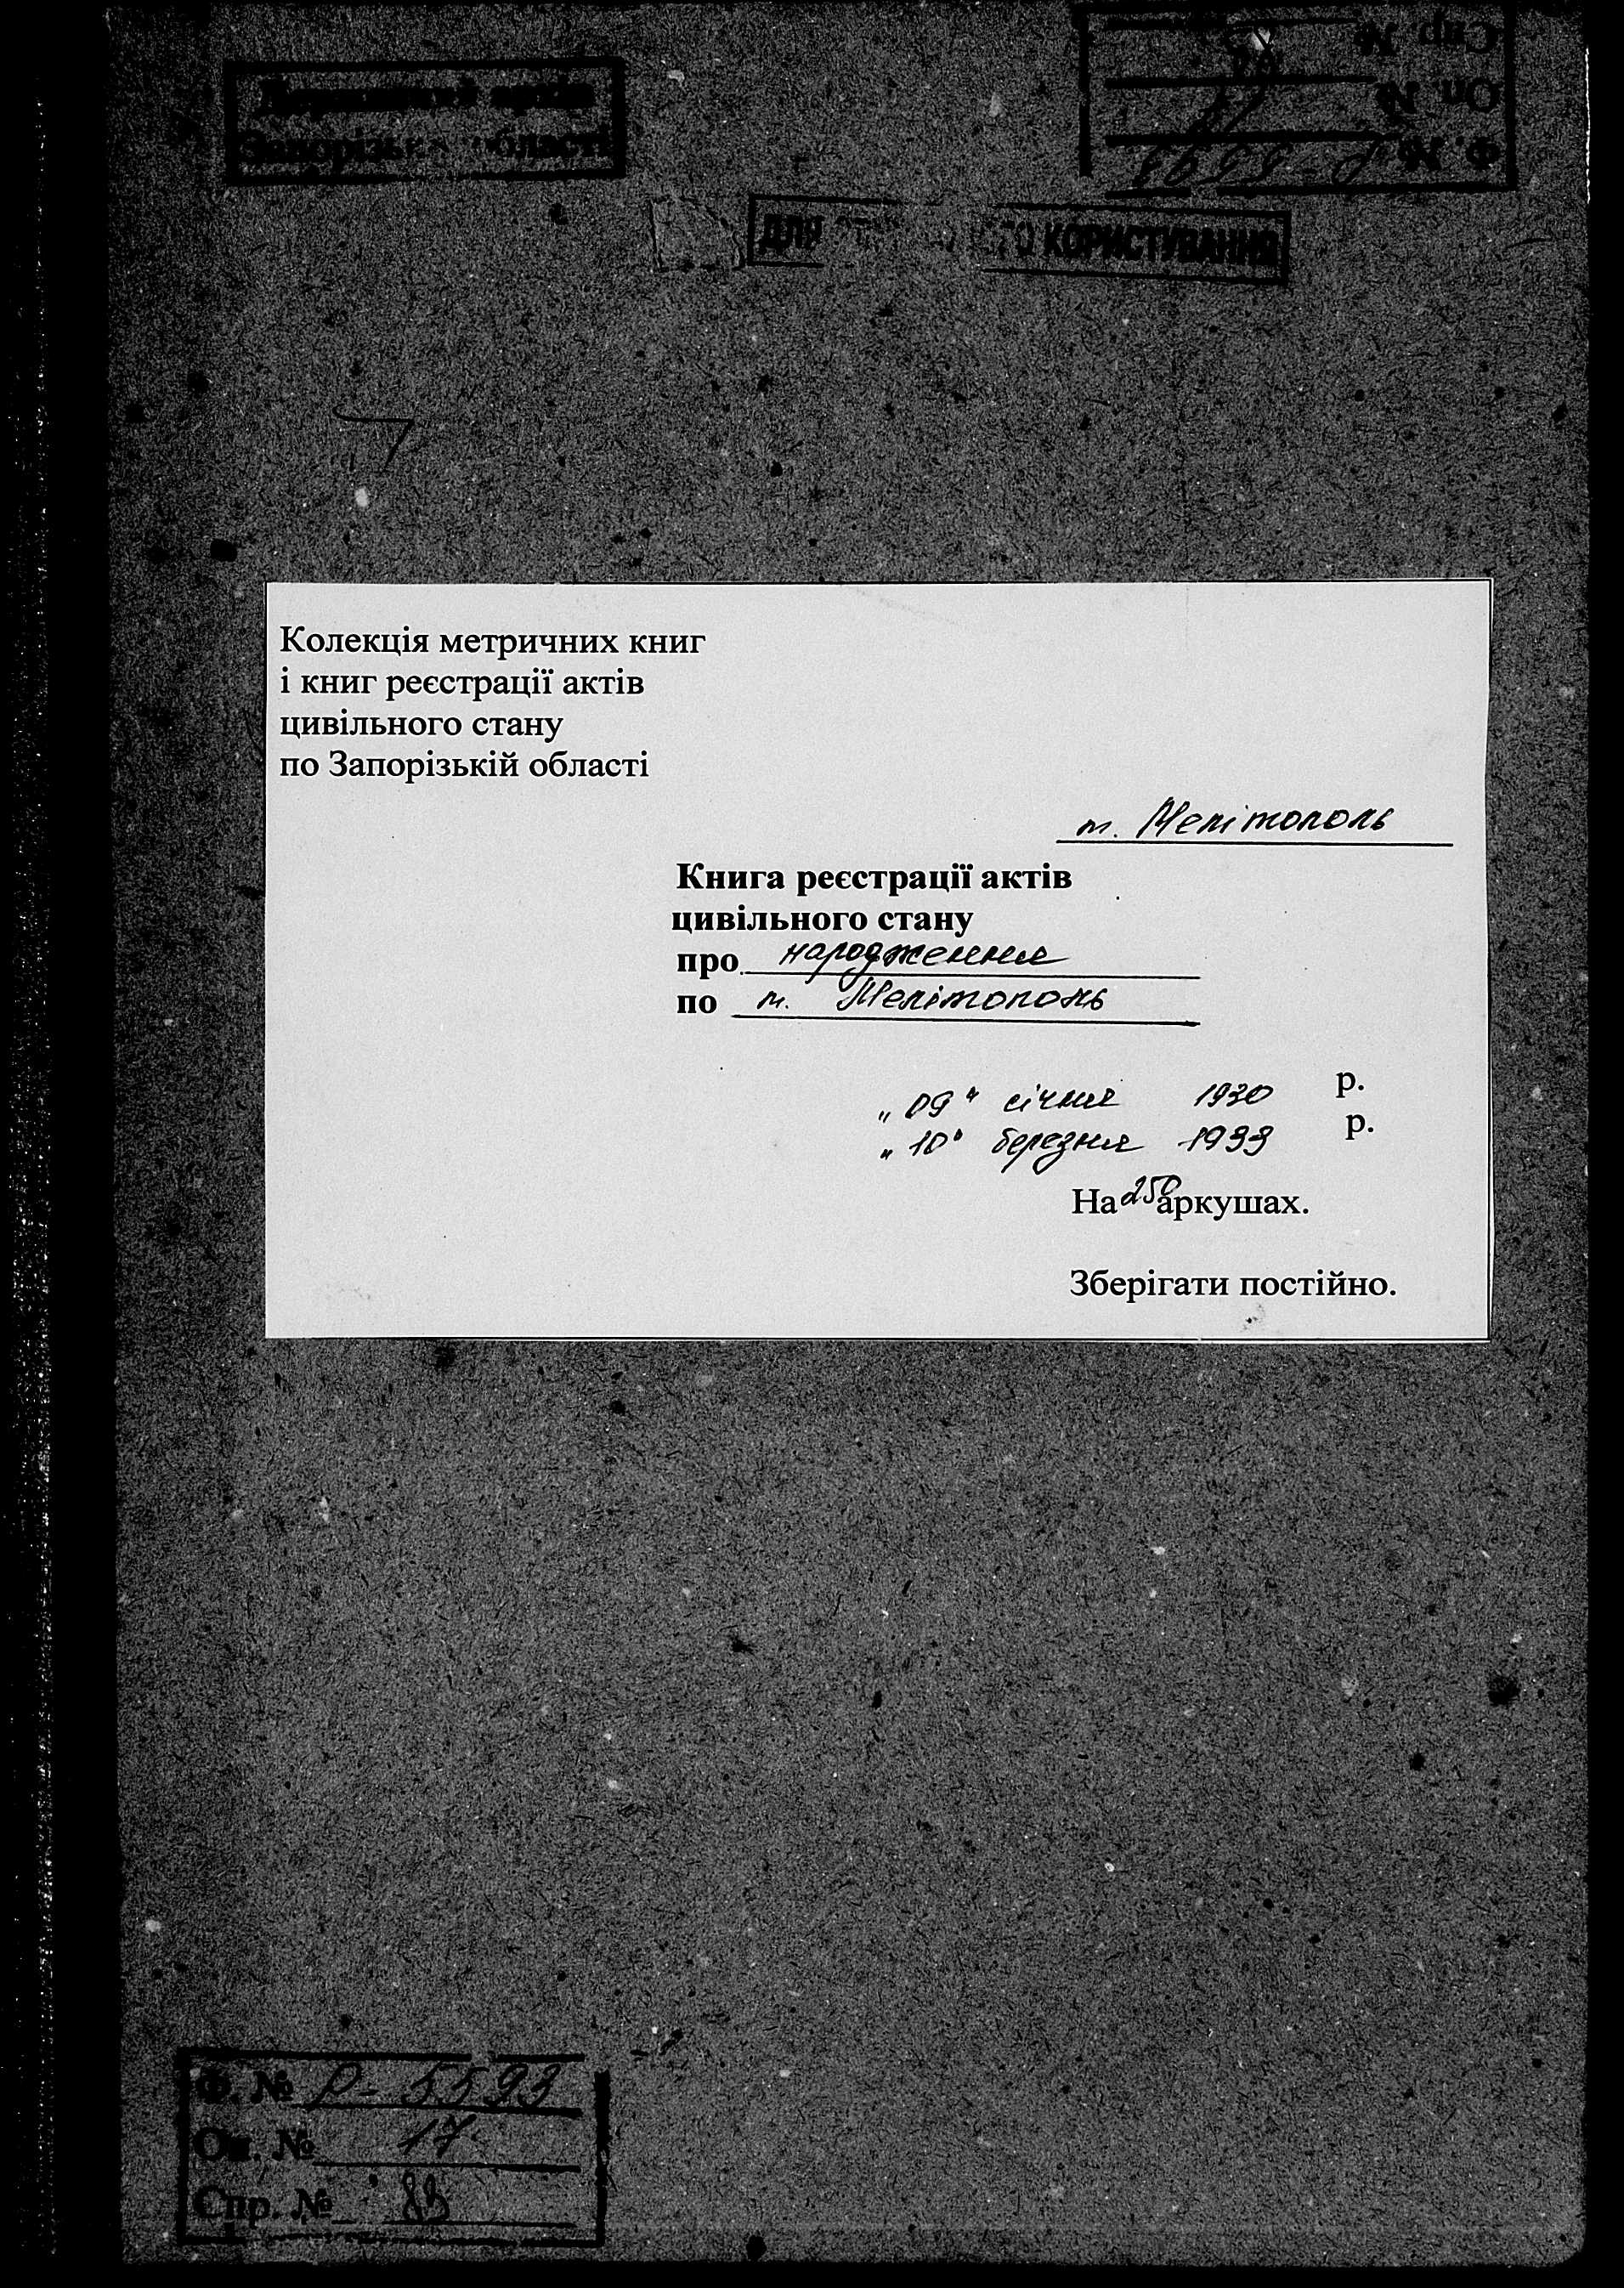 Державний архів
Запорізької області
Спр. №
Оп. № 17
Ф. № Р-5593
ДЛЯ КОРИСТУВАННЯ
Колекція метричних книг
і книг реєстрації актів
цивільного стану
по Запорізькій області
м. Мелітополь
Книга реєстрації актів
цивільного стану
про народження
по м. Мелітополь
„09" січня 1930 р.
„10" березня 1933 р.
На 250 аркушах.
Зберігати постійно.
Ф. № Р-5593
Оп. № 17
Спр. № 83